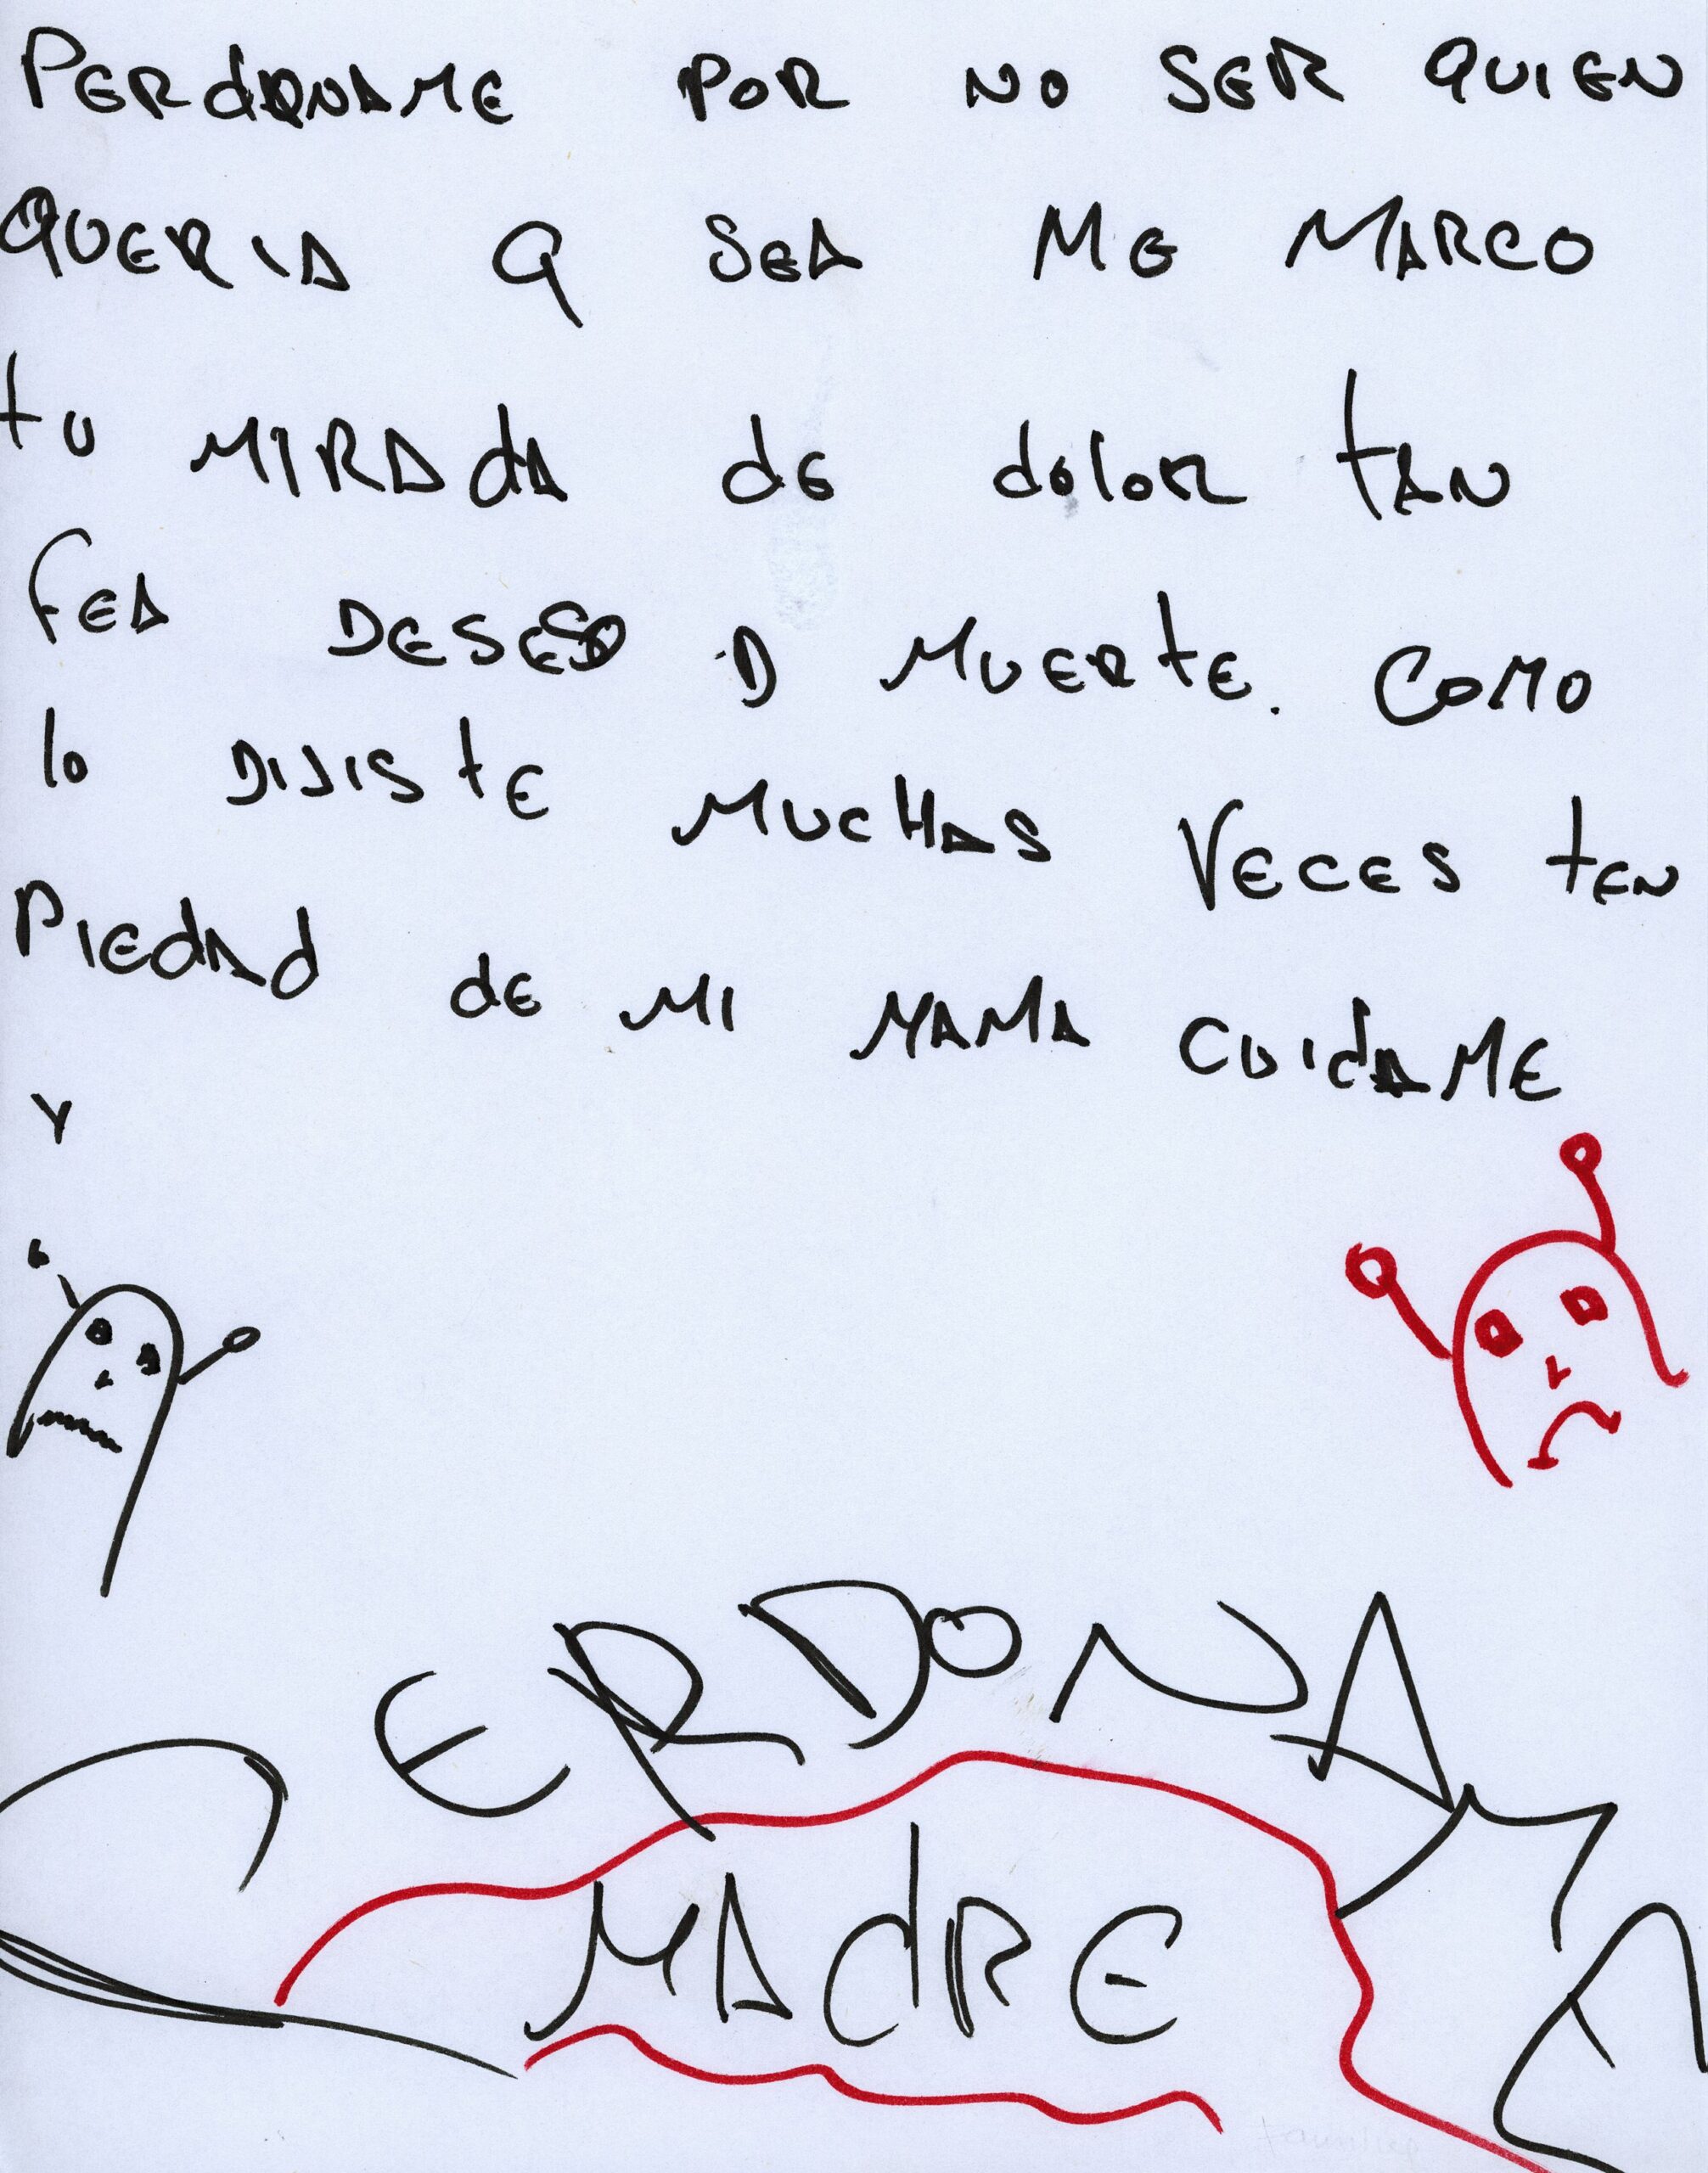 PERdONAME POR NO SER QUIEN
QUERIA Q SEA ME MARCO
tU MIRADdA dE dOlOR tAN
FEA DESEO D MUERtE. COMO
lO DIJIStE MUCHAS VECES tEN
PIEdAd dE MI MAMA CUIdAME
Y
PERDONAME
MAdRE